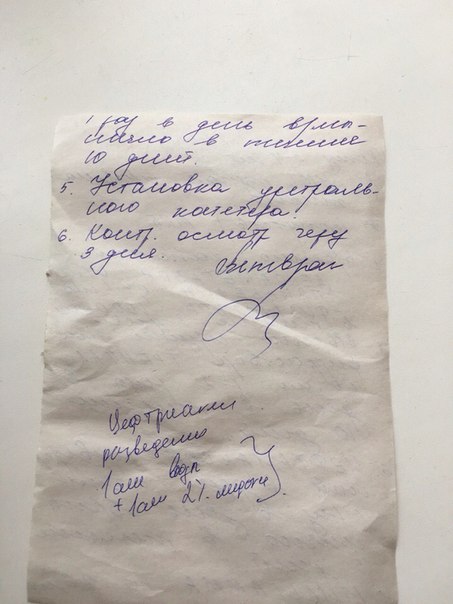 1 раз в день вmы-
шечно в течение
10 дней.
5. Установка уретраль-
ного катетера.
6. Контр. осмотр через
3 дня.
Ветврач
Цефтриаксон
разведение
1 амп воды
+ 1 амп 2%